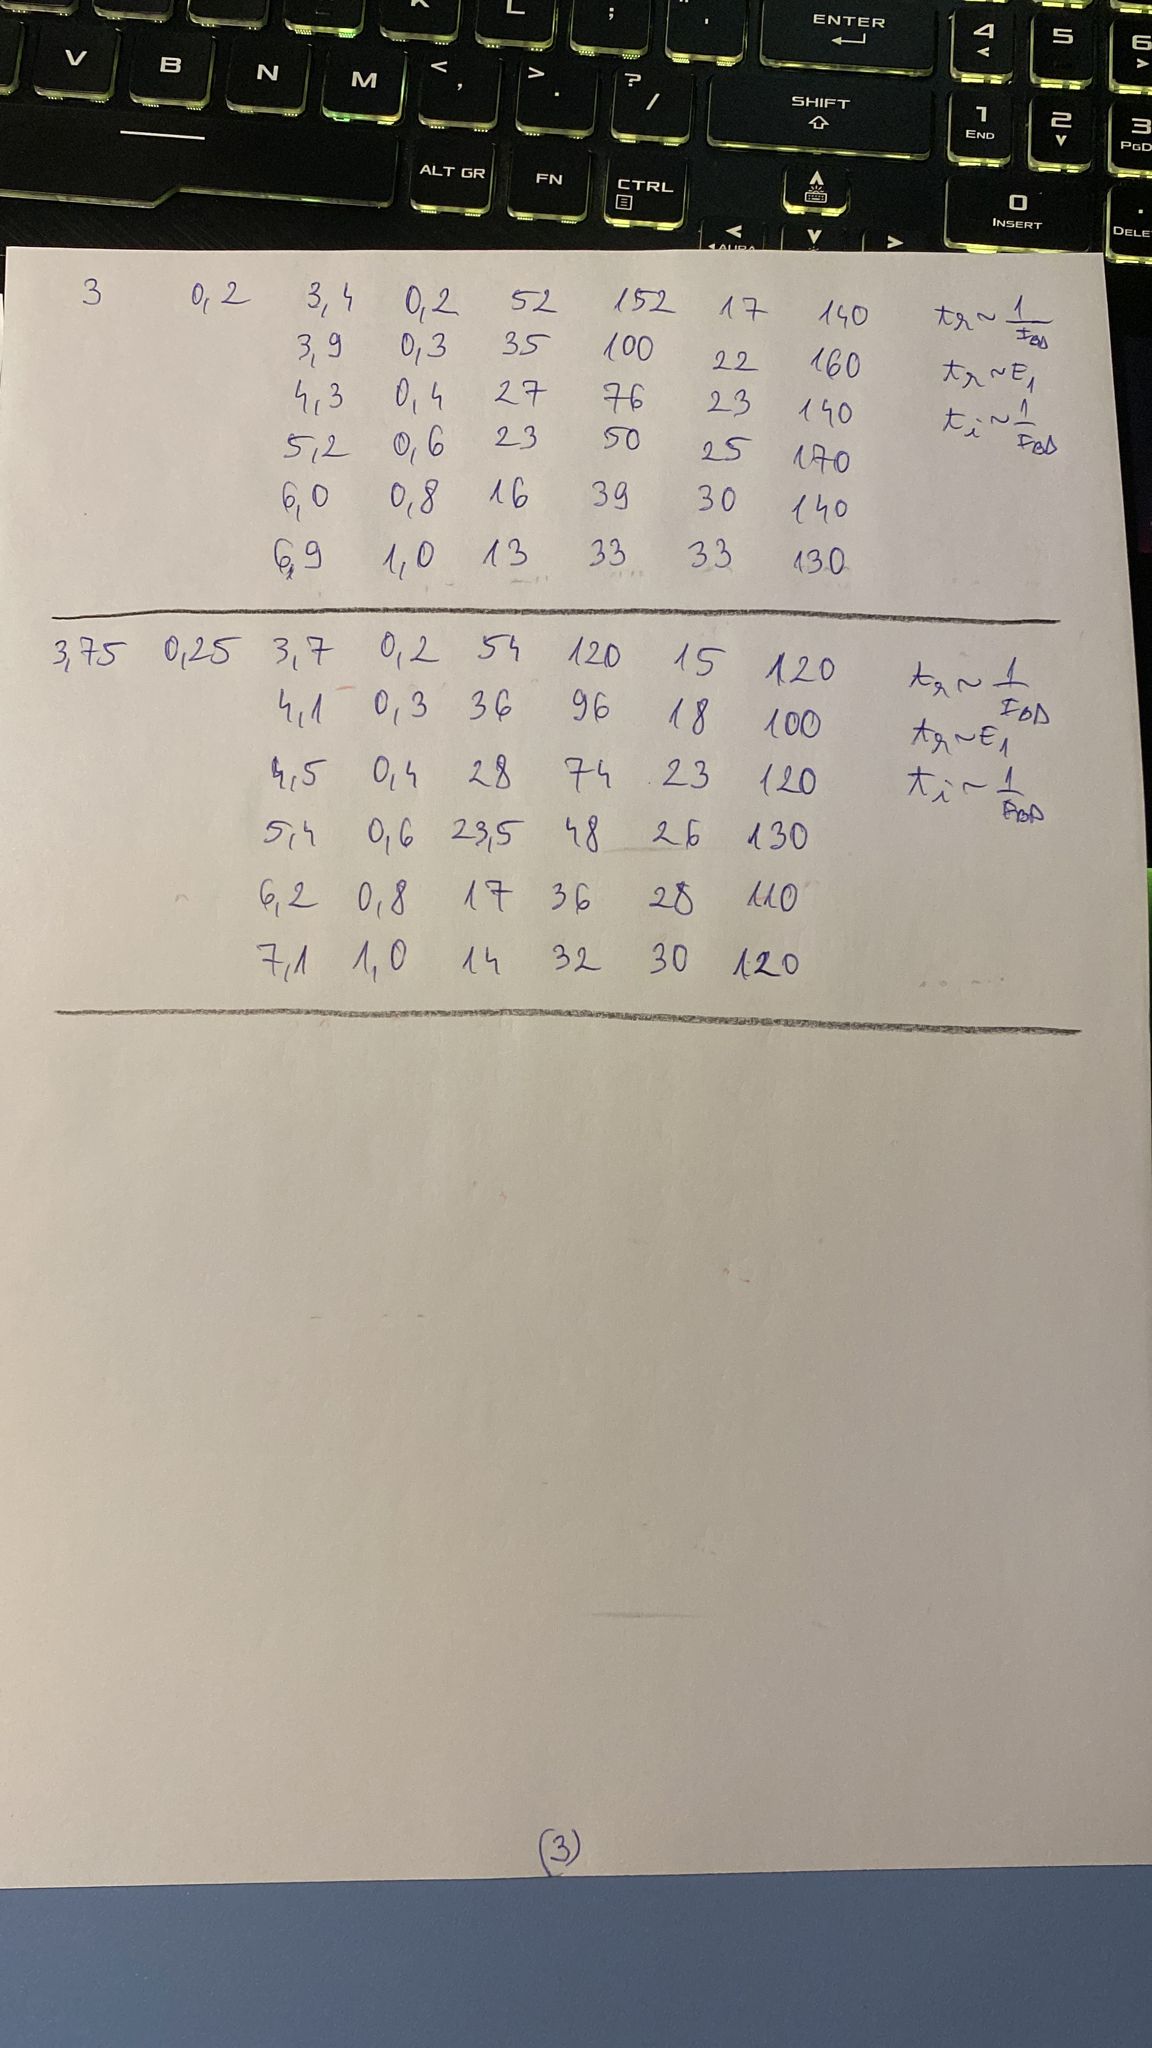 K L ; " ' ENTER 4 5 6
V B N M < , > . ? / SHIFT 1 END 2 3 PGD
ALT GR FN CTRL 0 INSERT . DELE
3 0,2 3,4 0,2 52 152 17 140 tr~1/IBD
3,9 0,3 35 100 22 160 tr~E1
4,3 0,4 27 76 23 140 ti~1/IBD
5,2 0,6 23 50 25 170
6,0 0,8 16 39 30 140
6,9 1,0 13 33 33 130
3,75 0,25 3,7 0,2 54 120 15 120 tr~1/IBD
4,1 0,3 36 96 18 100 tr~E1
4,5 0,4 28 74 23 120 ti~1/IBD
5,4 0,6 23,5 48 26 130
6,2 0,8 17 36 28 110
7,1 1,0 14 32 30 120
(3)